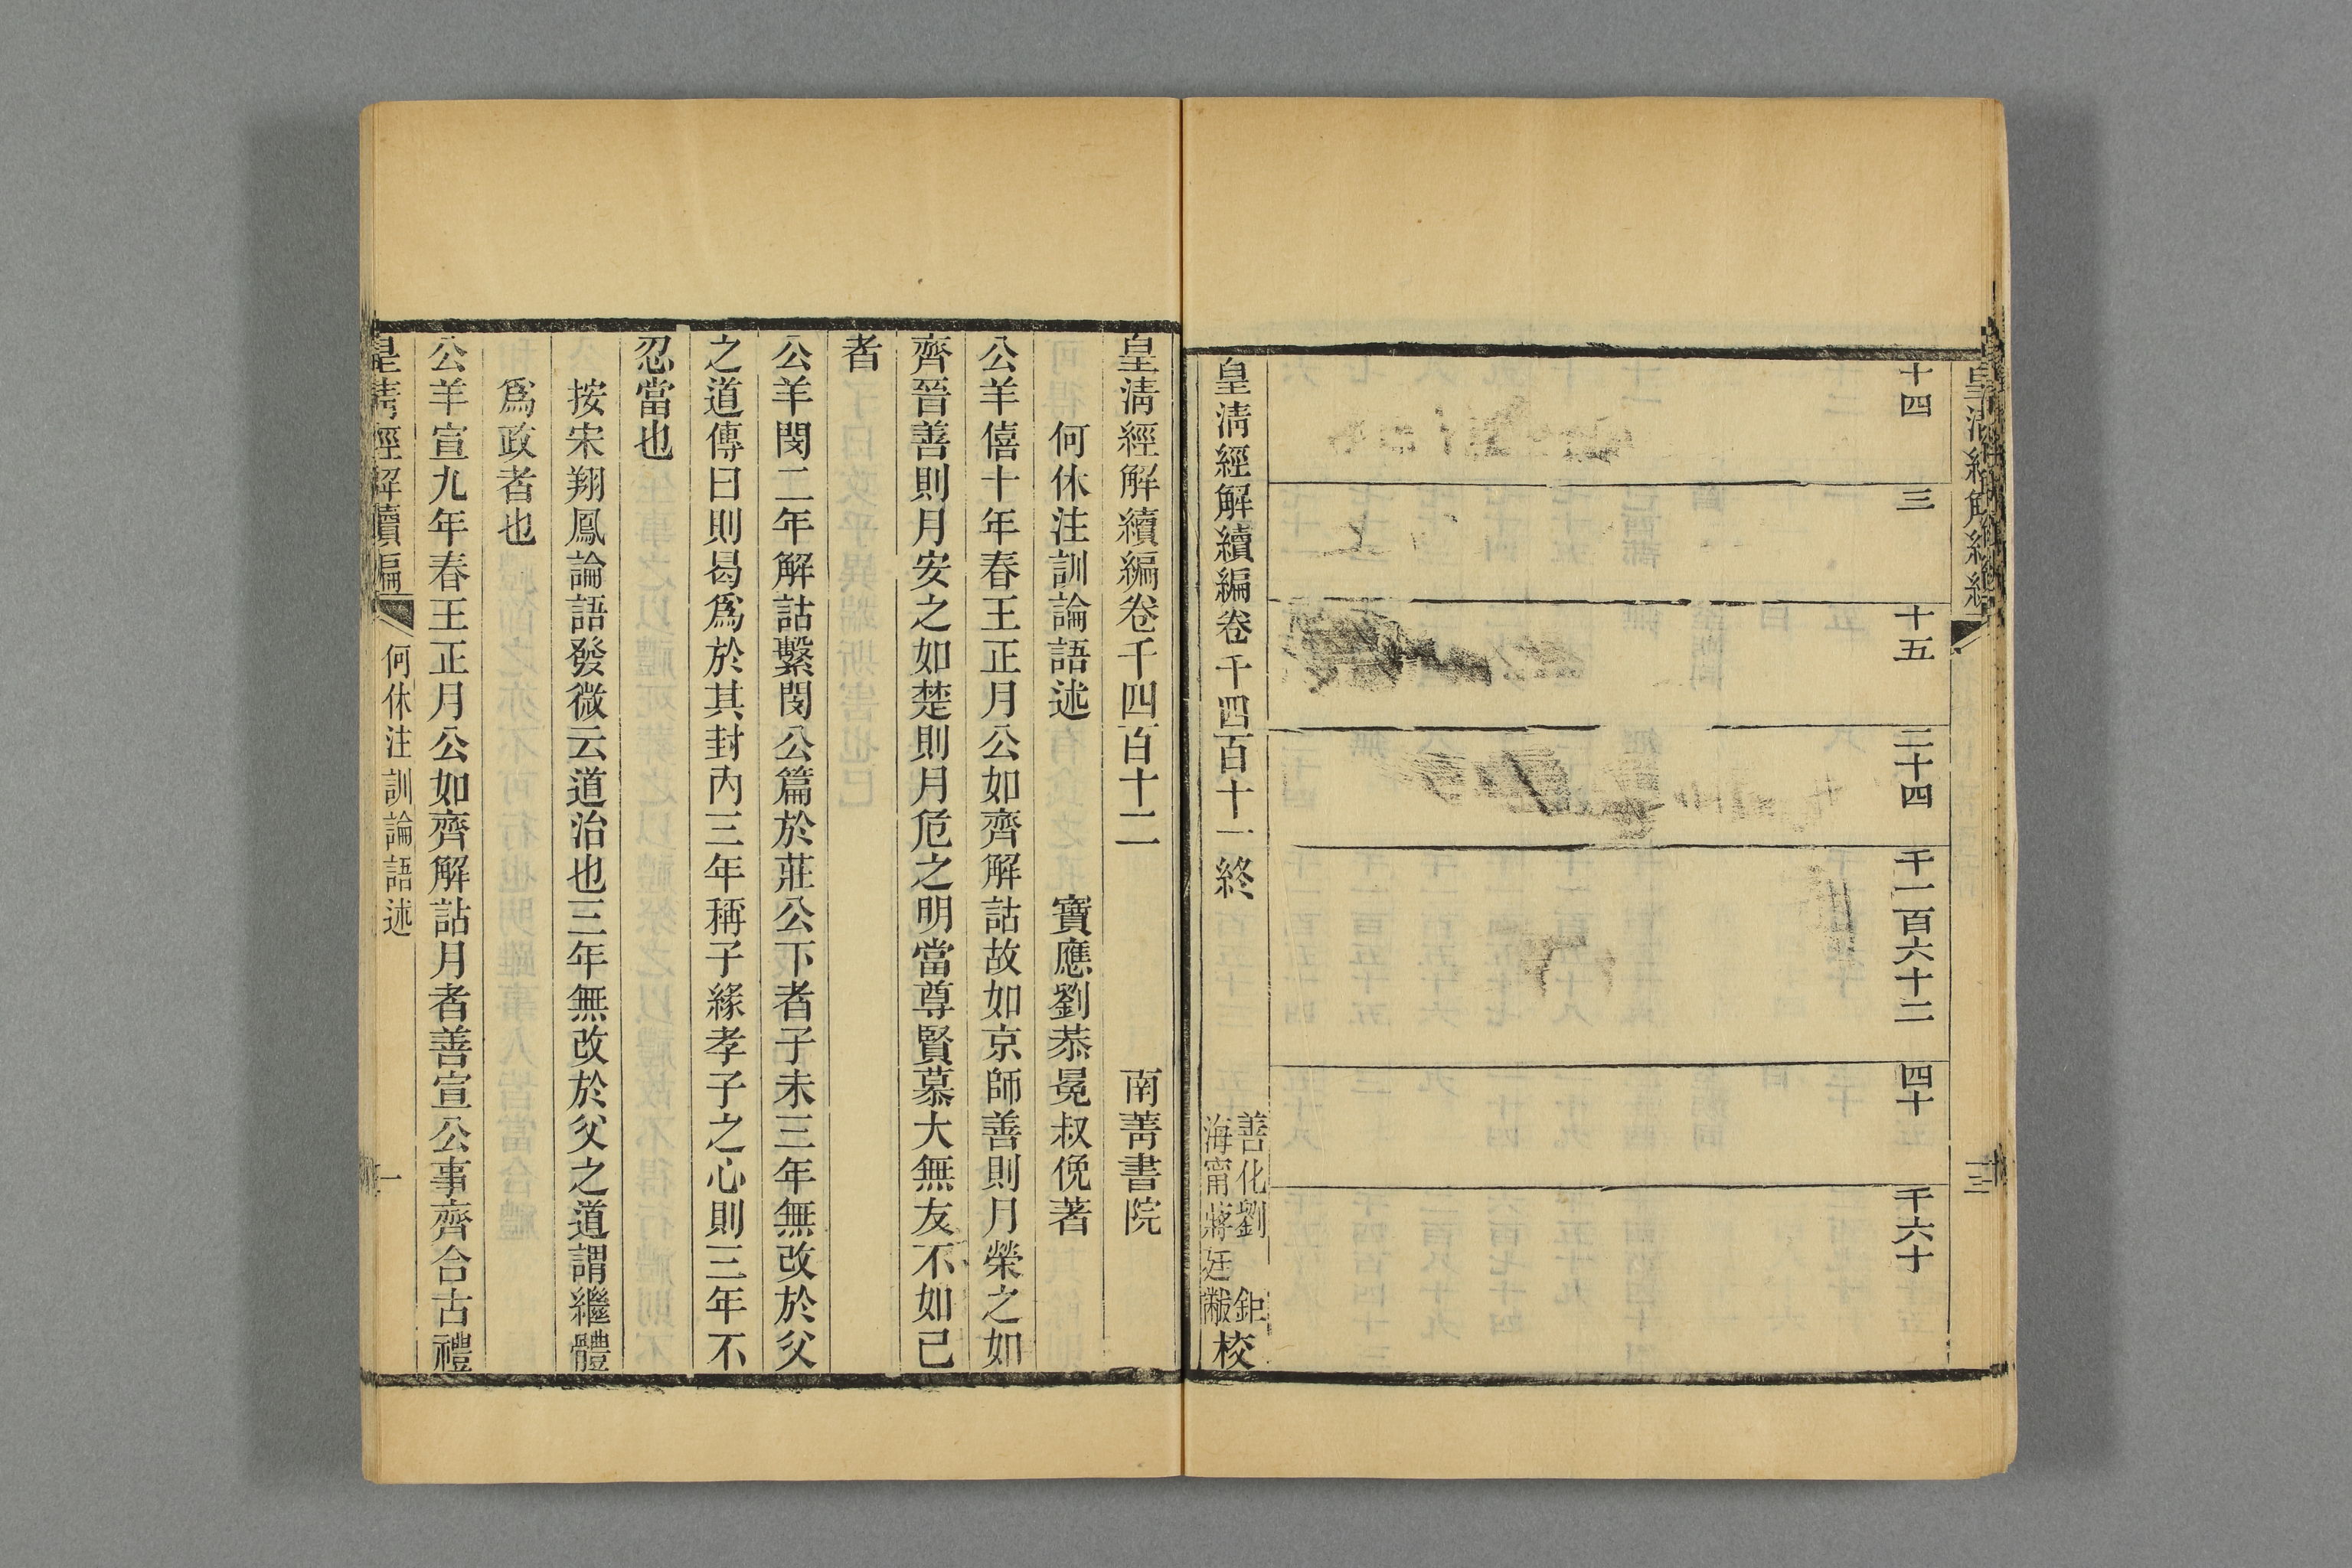 十四
三
十五
二十四
千一百六十二
四十
千六十
皇清經解續編卷千四百十一終
善化劉鉅
海甯蔣廷黻
校
皇清經解續編卷千四百十二
南菁書院
何休注訓論語述
寶應劉恭冕叔俛著
公羊僖十年春王正月公如齊解詁故如京師善則月榮之如
齊晉善則月安之如楚則月危之明當尊賢慕大無友不如己
者
公羊閔二年解詁繫閔公篇於莊公下者子未三年無改於父
之道傳曰則曷爲於其封內三年稱子緣孝子之心則三年不
忍當也
按宋翔鳳論語發微云道治也三年無改於父之道謂繼體
爲政者也
公羊宣九年春王正月公如齊解詁月者善宣公事齊合古禮
皇清經解續編
何休注訓論語述
一